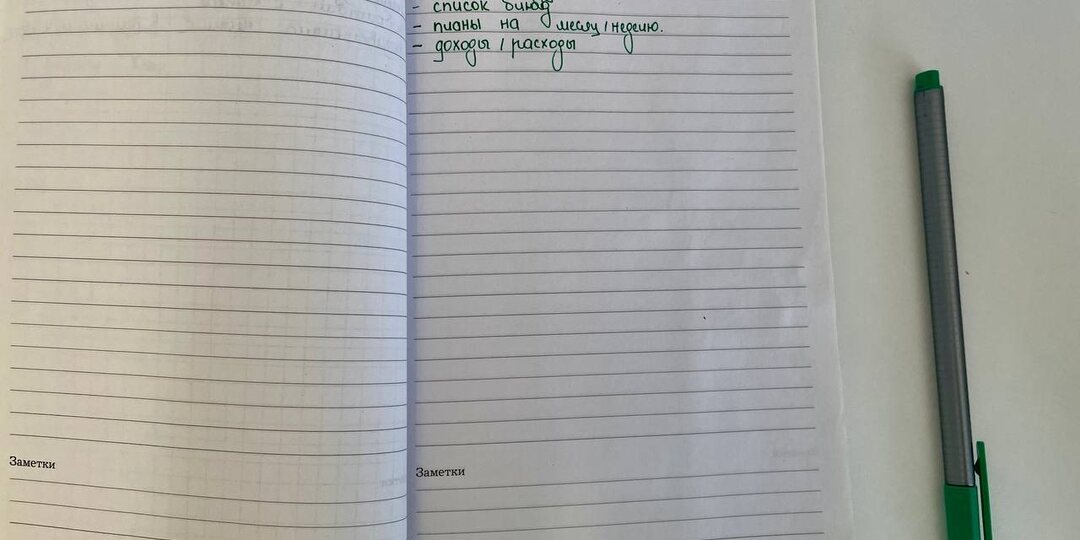 - список блюд
- планы на месяц / неделю.
- доходы / расходы
Заметки
Заметки